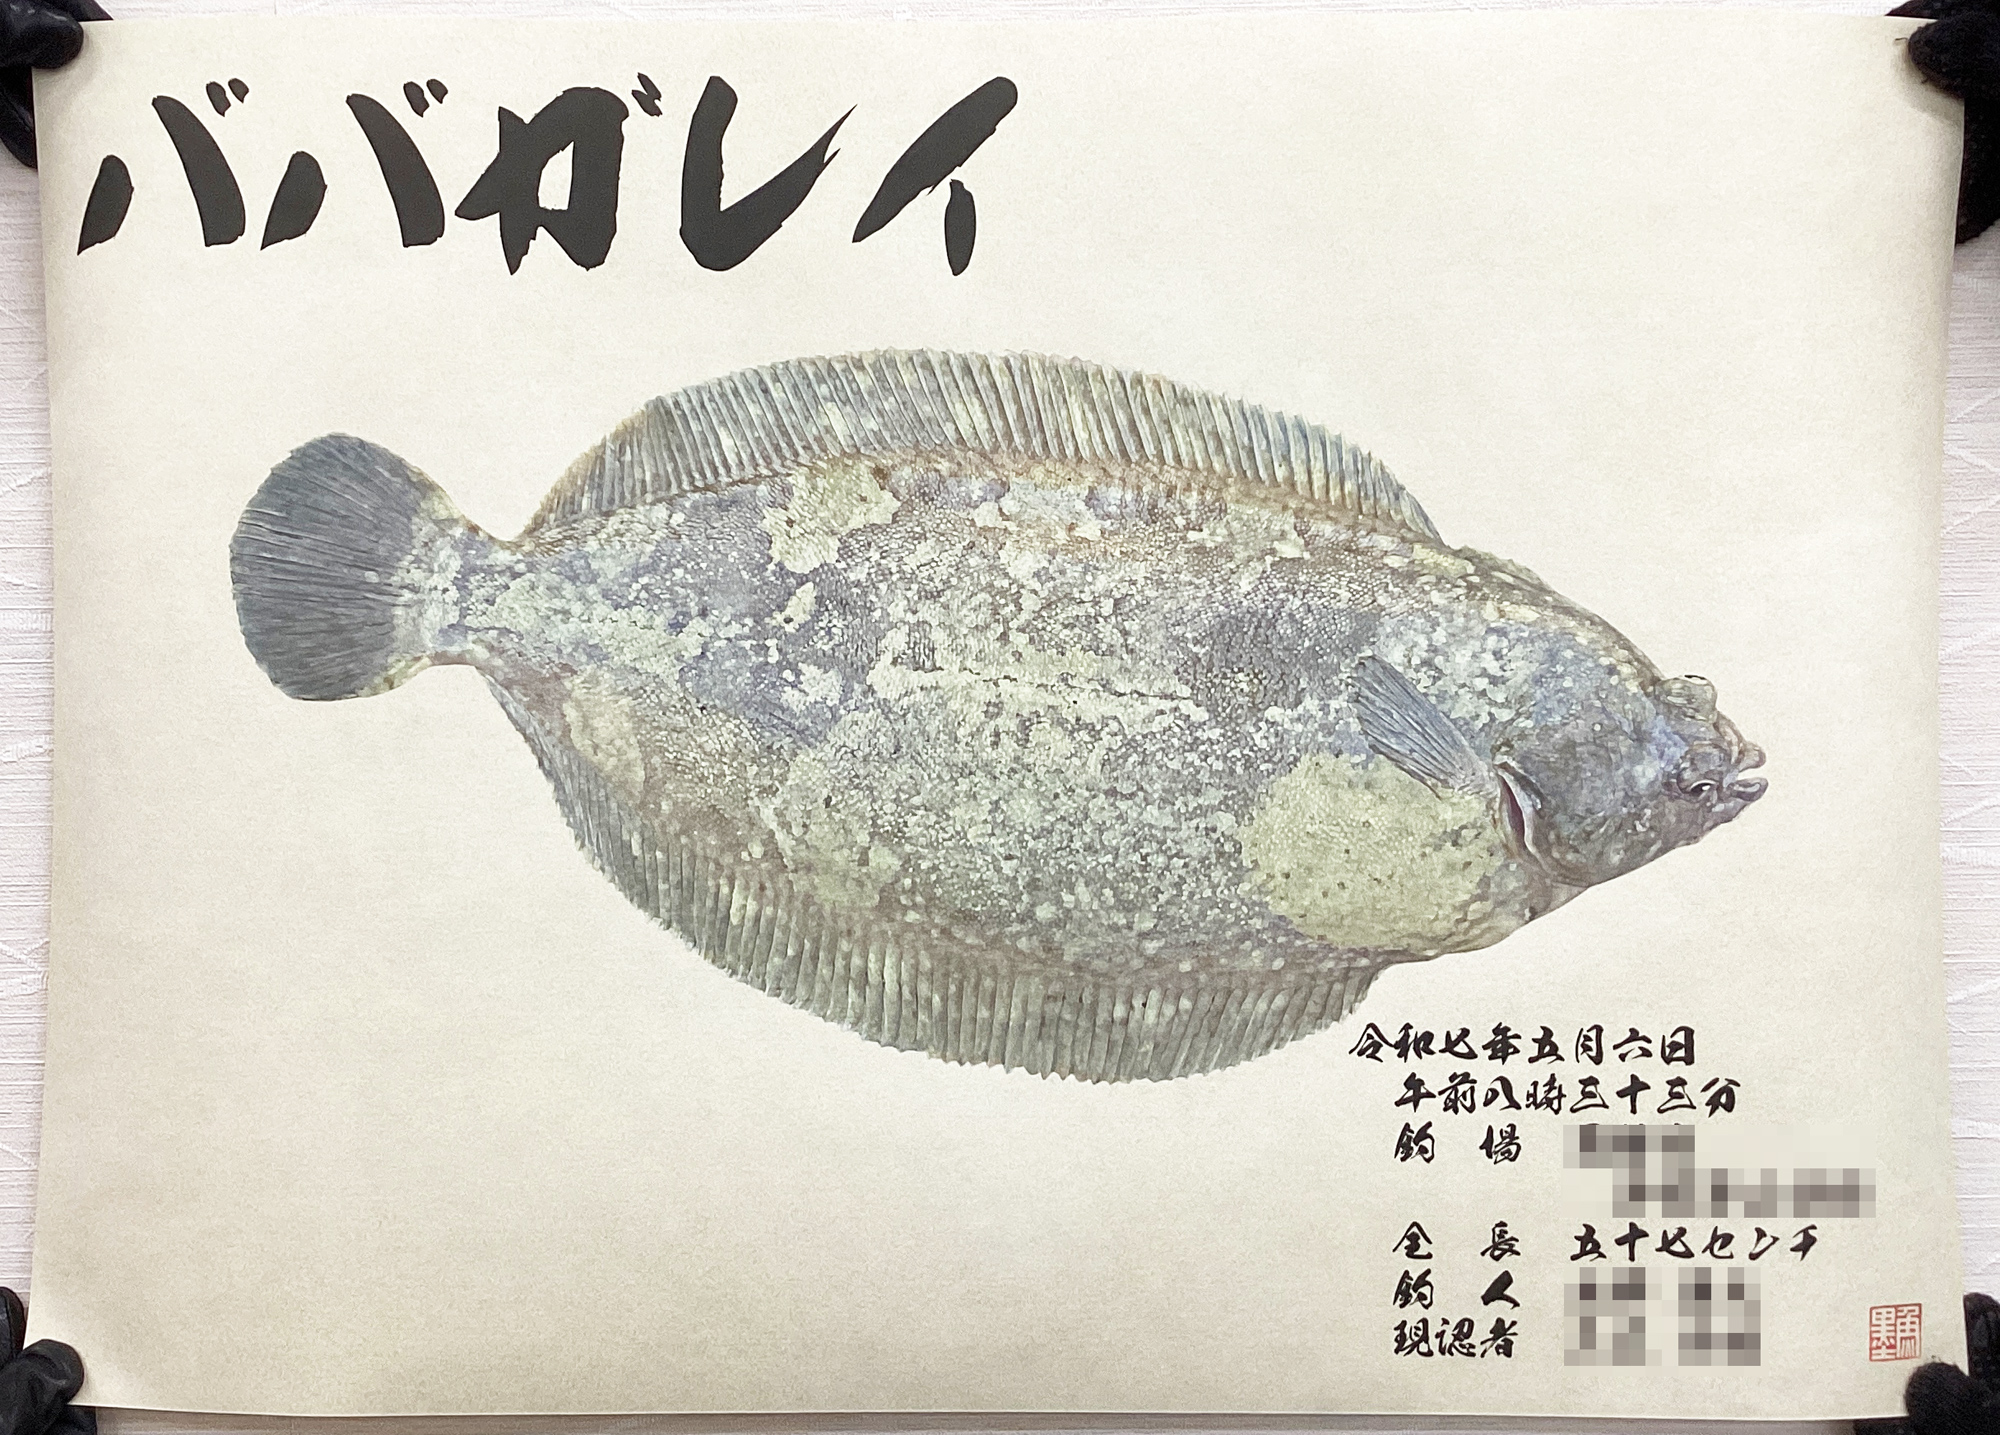 ババガレイ
令和七年五月六日
午前八時三十三分
釣 場
全 長 五十七センチ
釣 人
現認者
魚墨